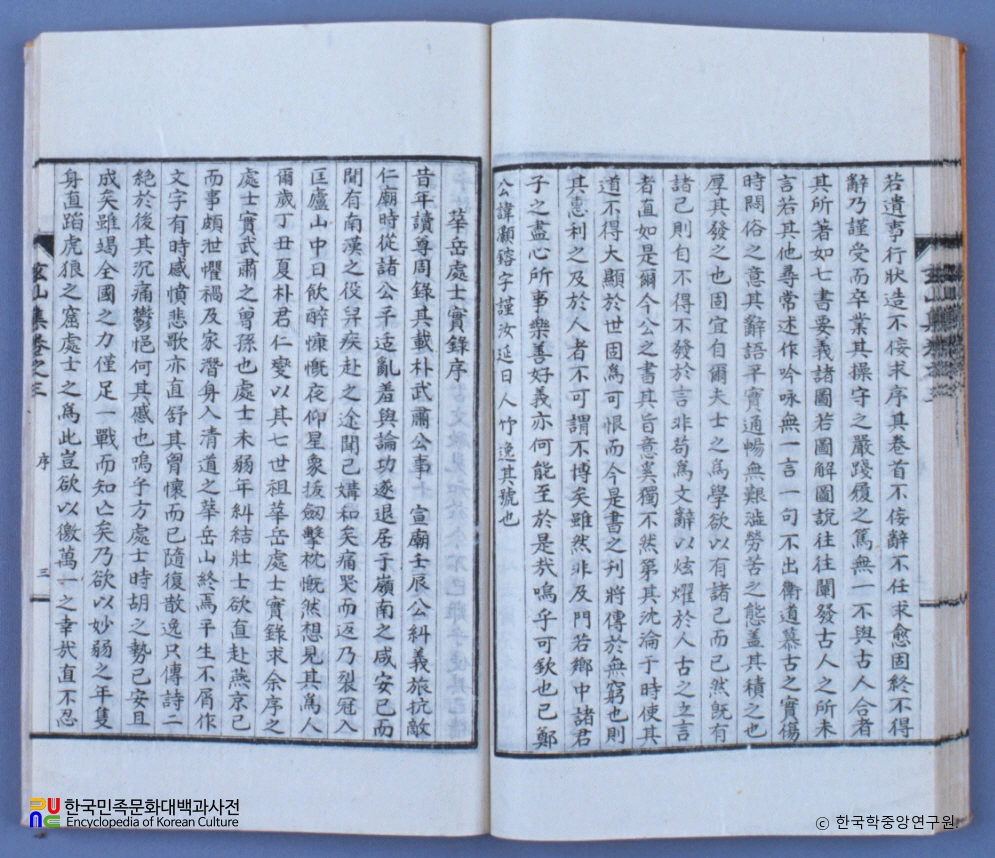 若遺事行狀造不侫求序其卷首不侫辭不任求愈固終不得
辭乃謹受而卒業其操守之嚴踐履之篤無一不與古人合者
其所著如七書要義諸圖若圖解圖說往往闡發古人之所未
言若其他尋常述作吟咏無一言一句不出衛道慕古之實傷
時悶俗之意其辭語平實通暢無艱澁勞苦之態盖其積之也
厚其發之也固宜自爾夫士之爲學欲以有諸己而已然旣有
諸己則自不得不發於言非苟爲文辭以炫耀於人古之立言
者直如是爾今公之書其旨意奚獨不然第其沈淪于時使其
道不得大顯於世固爲可恨而今是書之刊將傳於無窮也則
其惠利之及於人者不可謂不博矣雖然非及門若鄕中諸君
子之盡心所事樂善好義亦何能至於是㢤嗚乎可欽也已鄭
公諱灝鎔字謹汝延日人竹逸其號也
華岳處士實錄序
昔年讀尊周錄其載朴武肅公事 宣廟壬辰公糾義旅抗敵
仁廟時從諸公平适亂羞與論功遂退居于嶺南之咸安已而
聞有南漢之役舁疾赴之途聞已媾和矣痛哭而返乃裂冠入
匡廬山中日飮醉慷慨夜仰星象拔劒擊枕慨然想見其爲人
爾歲丁丑夏朴君仁燮以其七世祖華岳處士實錄求余序之
處士實武肅之曾孫也處士未弱年糾結壯士欲直赴燕京已
而事頗泄懼禍及家潛身入淸道之華岳山終焉平生不屑作
文字有時感憤悲歌亦直舒其胷懷而已隨復散逸只傳詩二
絶於後其沉痛鬱悒何其感也嗚乎方處士時胡之勢已安且
成矣雖竭全國之力僅足一戰而知亡矣乃欲以妙弱之年隻
身直蹈虎狼之窟處士之爲此豈欲以徼萬一之幸㢤直不忍
山集卷之三 序 三
한국민족문화대백과사전
Encyclopedia of Korean Culture
© 한국학중앙연구원